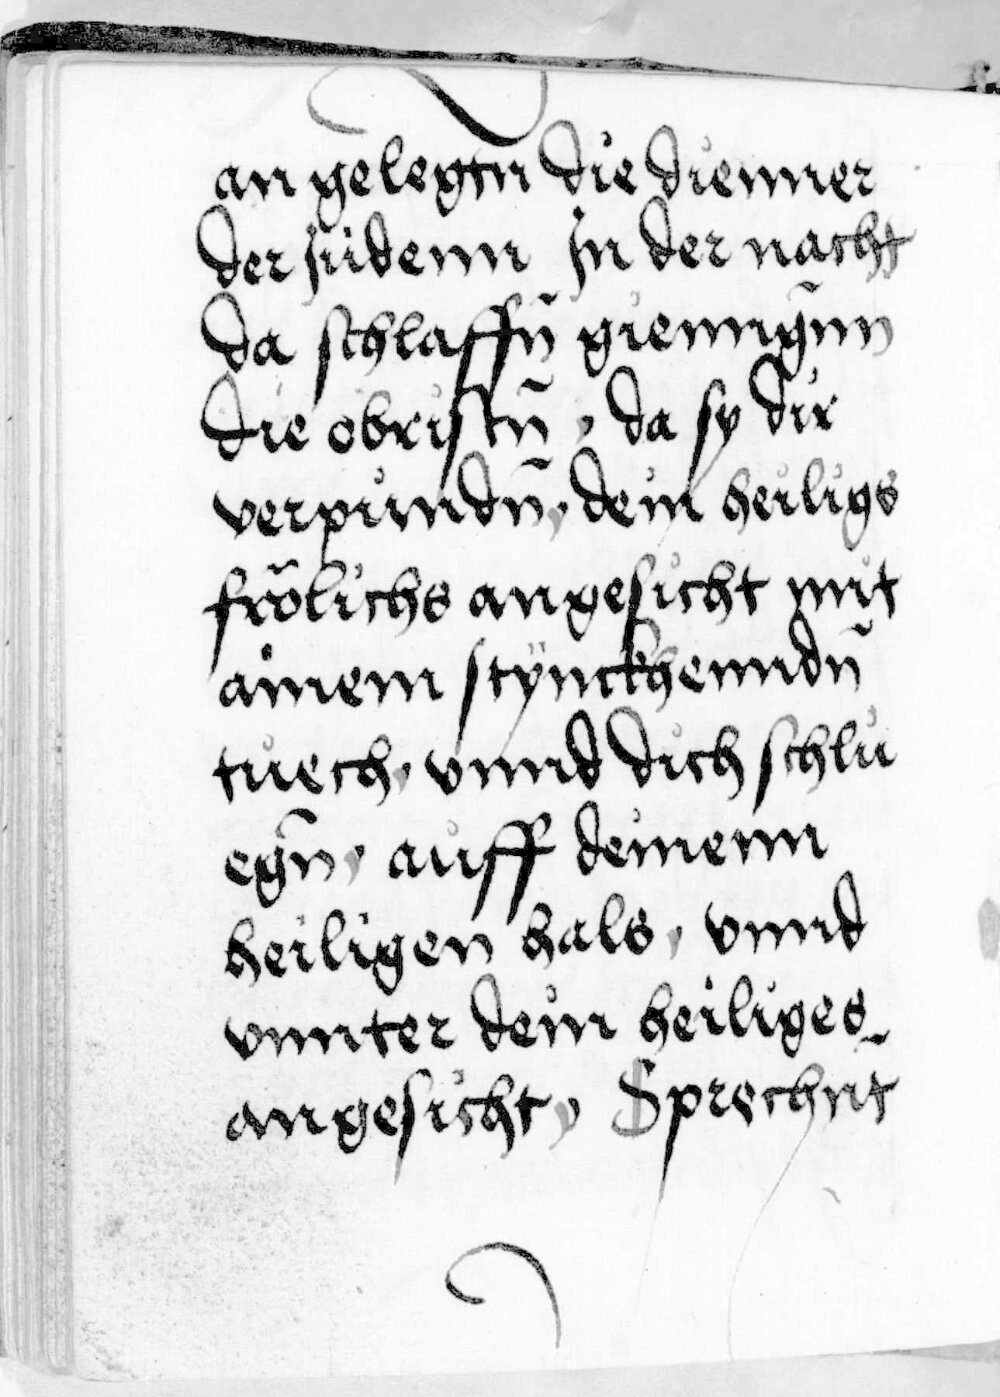 an gelegtn die diennerr
der Judenn In der nacht
da schlaffn̄ gienngn̄n
die obristn̄, da sy dir
verpundn̄, dein heiligs
frölichs angesicht mit
ainem stÿnckhenndn̄
tuech, vnnd dich schlu
egn̄, auff deinenn
heiligen hals, vnnd
vnnter dein heiliges
angesicht, Sprechn̄t